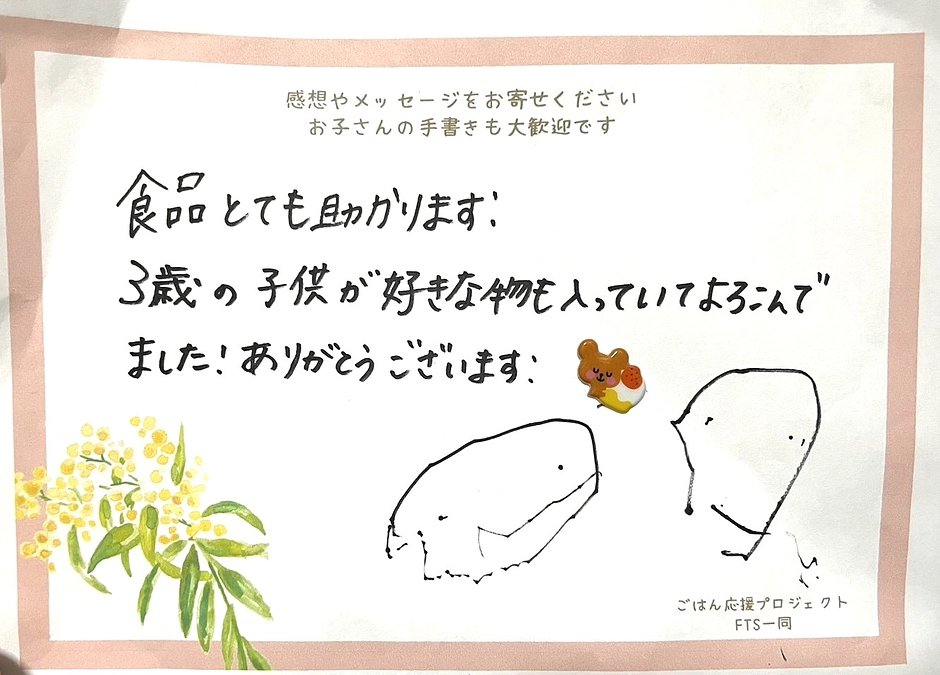 感想やメッセージをお寄せください
お子さんの手書きも大歓迎です
食品とても助かります!
3歳の子供が好きな物も入っていてよろこんで
ました！ありがとうございます!
ごはん応援プロジェクト
FTS一同